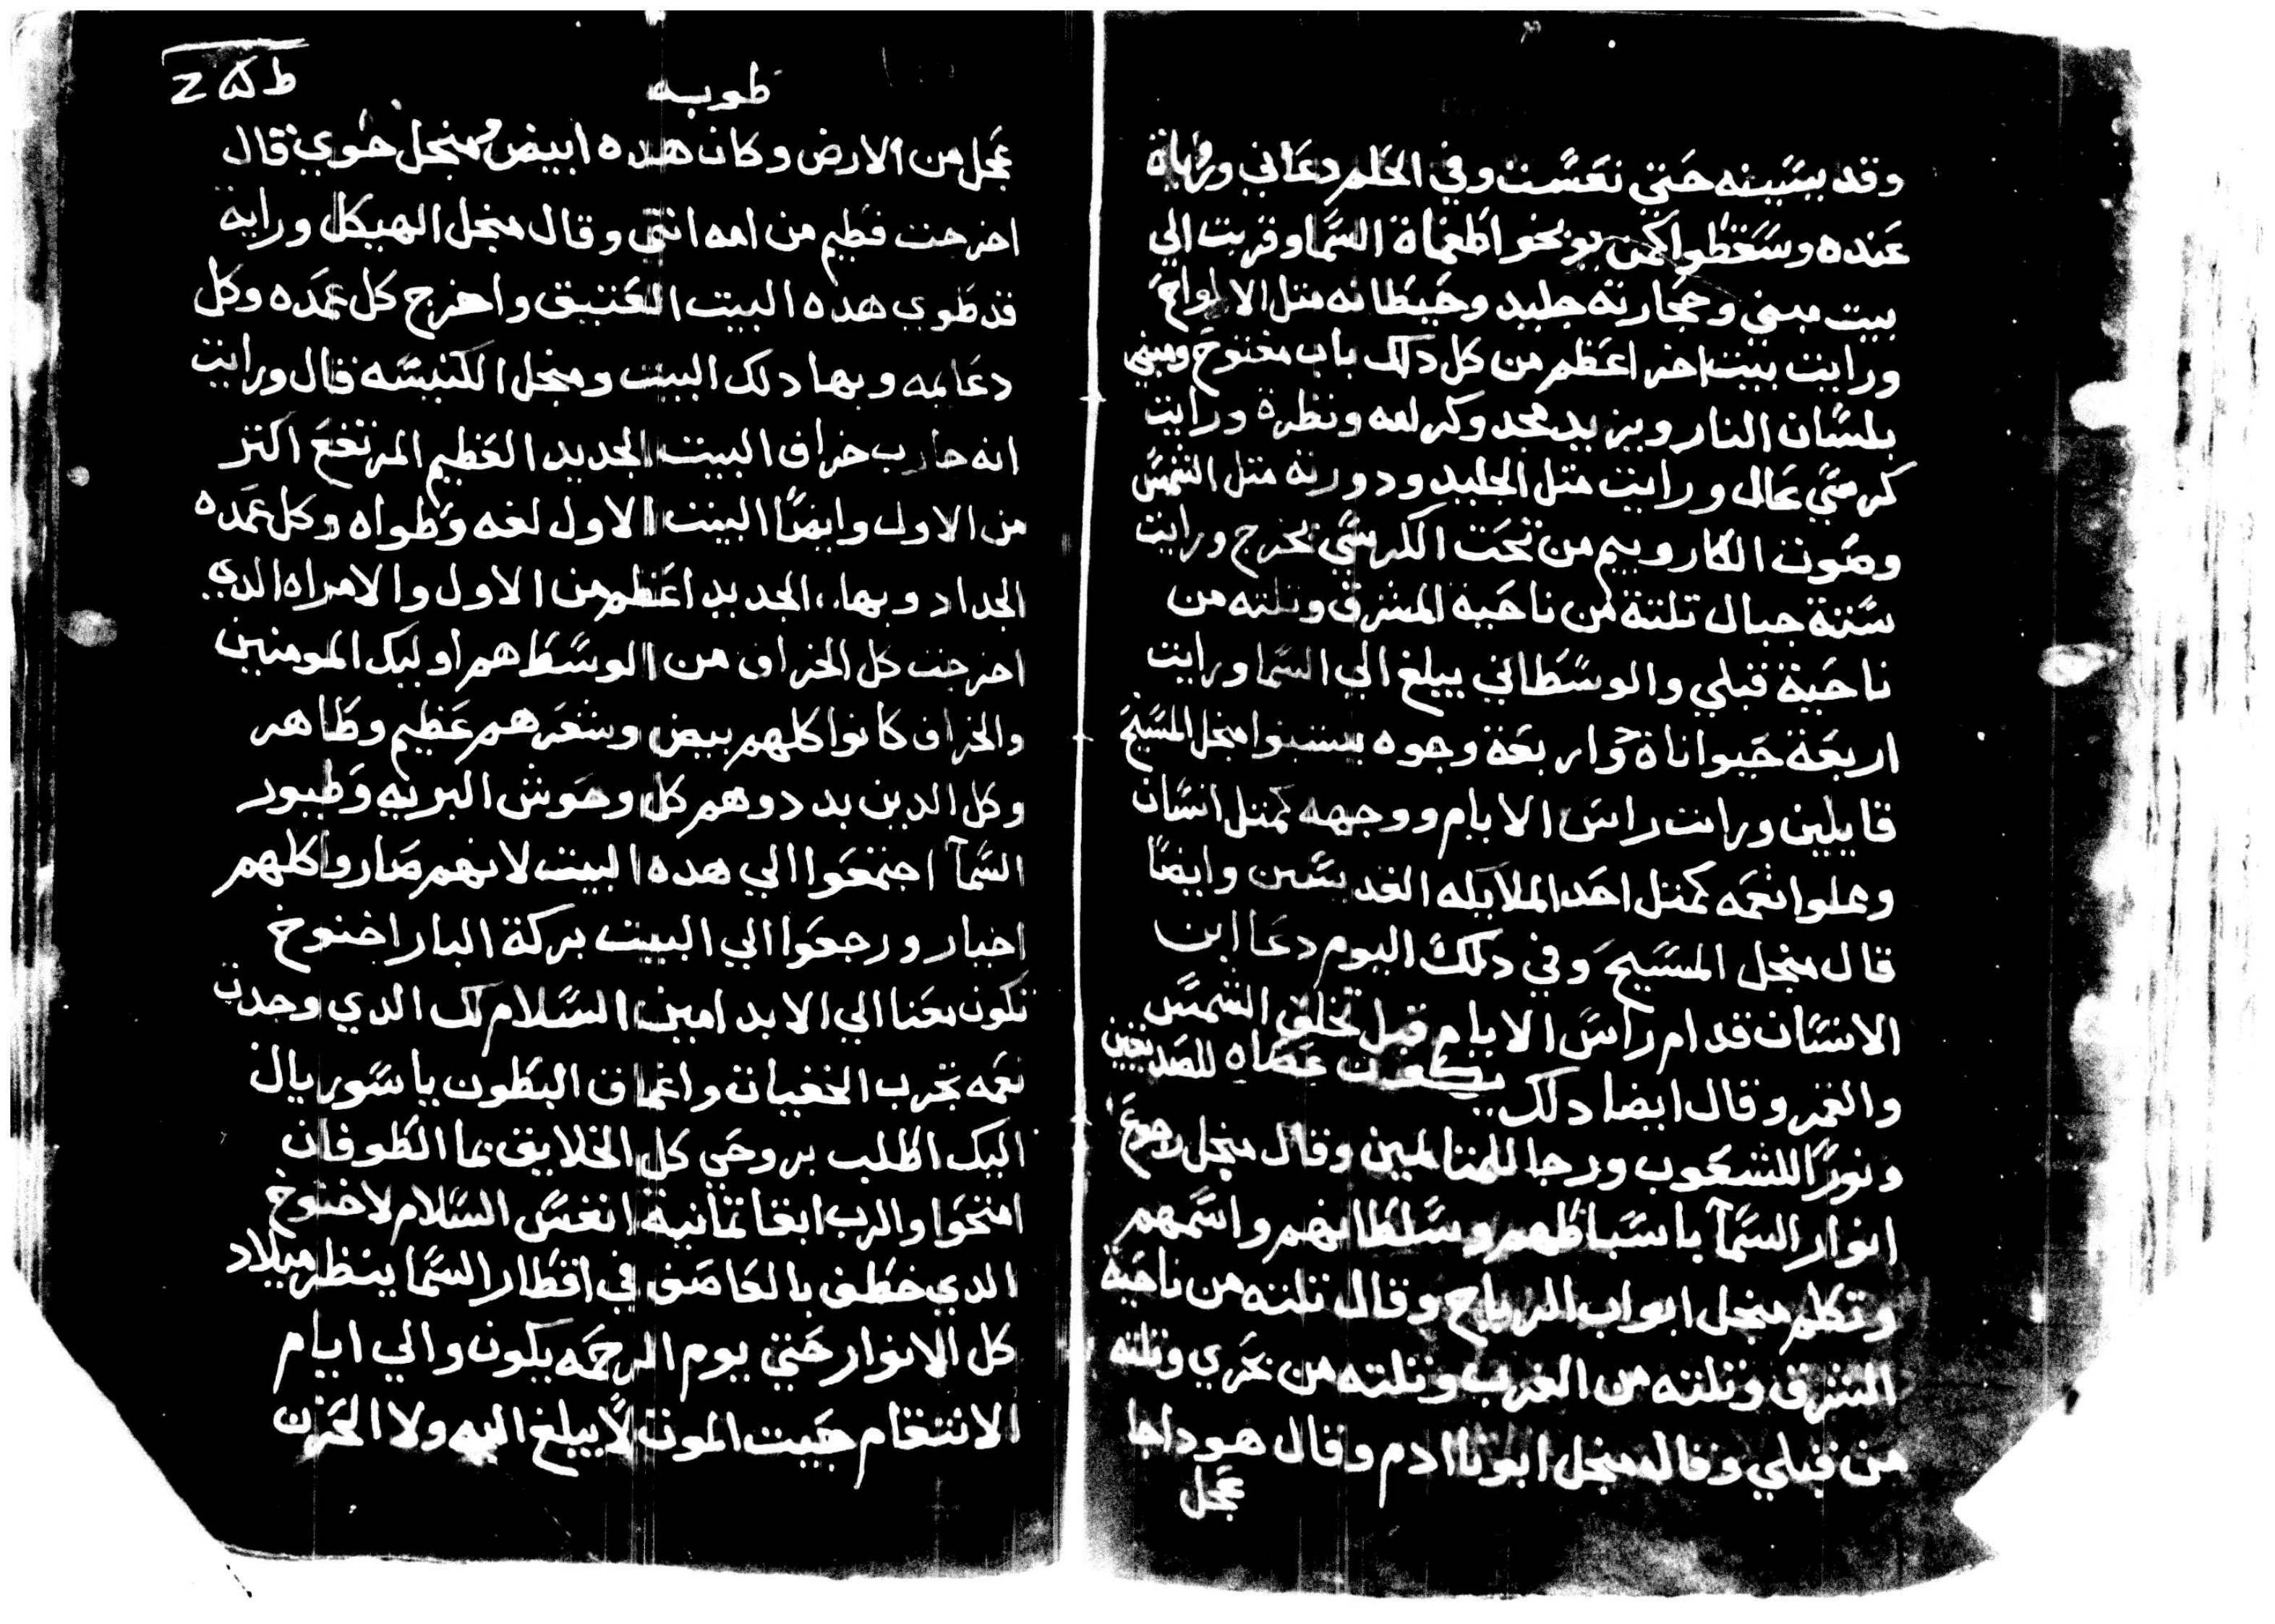 وقد بسَببنه حَتي نعَسَت وفي الحَلم دعَاني وراياة
عَنده وسَقطوا كمن يوبخوا طغماة السَما وقربت الي
بيت مبني وحجارته جليد وحَيطانه متل الالواح
ورايت بيت اخر اعَظم من كل دلك باب مفتوح ومبني
بلسَان النار ويزيد مجد وكرامه ونظرة ورايت
كرسَي عَال ورايت متل الجليد ودورته متل الشمسَ
وصَوت الكاروبيم من تحَت الكرسَي يخرج ورايت
سَتة جبال تلتة من ناحَية المشرق وتلته من
ناحَية قبلي والوسَطاني يبلغ الي السَما ورايت
اربعَة حَيواناة واربعَة وجوه يسَبَحوا منجل المسَيحَ
قايلين ورات راسَ الايام ووجهه كمتل انسَان
وملوا نعَمه كمتل احَد الملايكه القديسَين وايضًا
قال منجل المسَيحَ وفي دلك اليوم دعَا ابن
الانسَان قدام راسَ الايام قبل تخلق الشمسَ
والقمر وقال ايضا دلك يكون عَصَاه للصَديقين
ونورًا للشعَوب ورجا للمتالمين وقال منجل رجوعَ
انوار السَمآ باسَباطهم وسَلطانهم واسَمهم
وتكلم منجل ابواب الرياح وقال تلته من ناحَية
الشرق وتلته من الغرب وتلته من بحَري وتلته
من قبلي وقال منجل ابونا ادم وقال هودا جا
عَجل
طوبه
عَجل من الارض وكان هده ابيض ومنجل حَوي قال
اخرجت فطيم من امه انتي وقال منجل الهيكل وراية
قد طوي هده البيت العَتيق واخرج كل عَمَده وكل
دعَايمه وبها دلك البيت ومنجل الكنيسَه قال ورايت
انه جارب خراف البيت الجديد العَظيم المرتفعَ اكتر
من الاول وايضًا البيت الاول لفه وطواه وكل عَمَده
الجداد وبها الجديد اعَظم من الاول والامراه الدي
اخرجت كل الخراف من الوسَط هم اوليك المومنين
والخراف كانوا كلهم بيض وشعَرهم عَظيم وطاهر
وكل الدين بددوهم كل وحَوش البريه وطيور
السَمآ اجتمعَوا الي هده البيت لانهم صَاروا كلهم
اخيار ورجعَوا الي البيت بركة البار اخنوخ
تكون معَنا الي الابد امين السَلام لك الدي وجدت
نعَمه تجرب الخفيات واعَماق البطون يا سَوريال
اليك اطلب بروحَي كل الخلايق بما الطوفان
امتحَوا والرب ابقا تمانية انفسَ السَلام لاخنوخ
الدي خطف بالعَاصَف في اقطار السَما ينظر ميلاد
كل الانوار حَتي يوم الرحَمه يكون والي ايام
الانتقام حَيت الموت لا يبلغ اليه ولا الحَزن